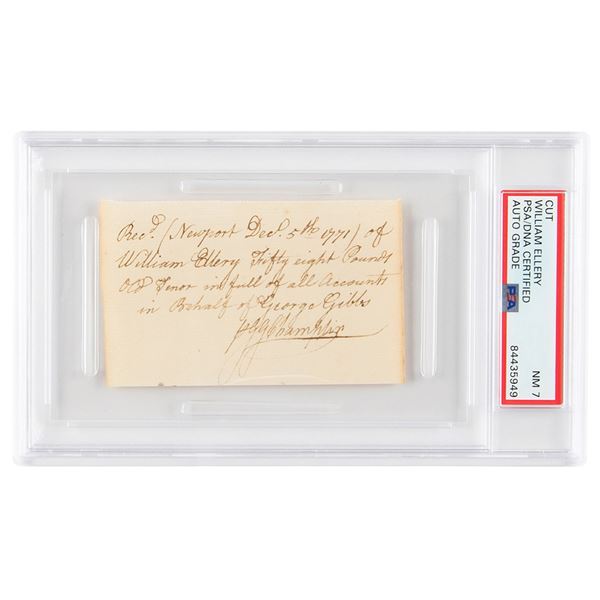 Rec.d (Newport Dec.r 5th 1771) of
William Ellery Fifty eight Pounds
Old Tenor in full of all Accounts
in Behalf of George Gibbs
Champlin
CUT
WILLIAM ELLERY
PSA/DNA CERTIFIED
AUTO GRADE
PSA
NM 7
84435949